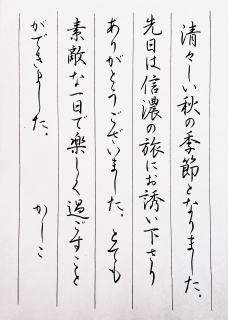 清々しい秋の季節となりました。
先日は信濃の旅にお誘い下さり
ありがとうございました。とても
素敵な一日で楽しく過ごすこと
ができました。 かしこ